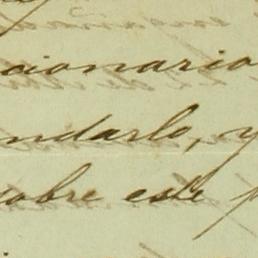 cionario
ndarlo, y
sobre este